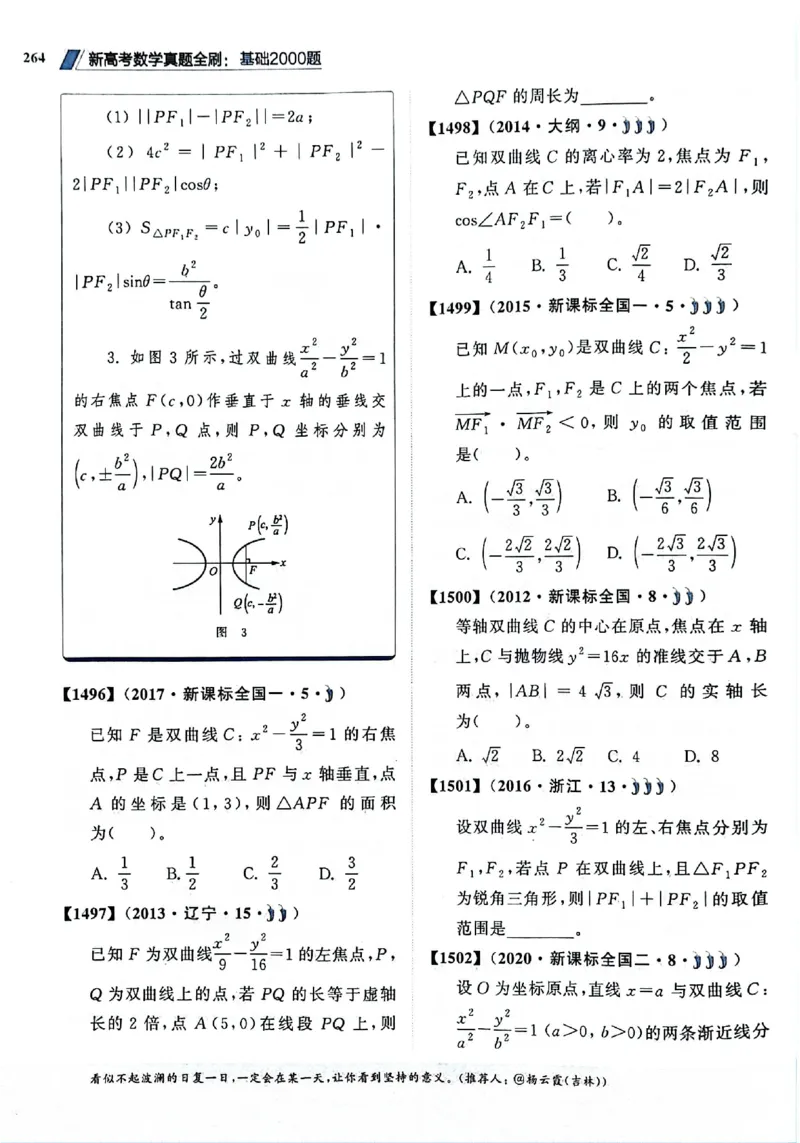 264 新高考数学真题全刷：基础2000题
(1) ||PF₁|-|PF₂||=2a；
(2) 4c² = |PF₁|² + |PF₂|² -
2|PF₁||PF₂|cosθ；
(3) S△PF₁F₂ = c|y₀| = 1/2|PF₁|·
|PF₂|sinθ = b²/tan(θ/2)。
3. 如图 3 所示，过双曲线 x²/a² - y²/b² = 1
的右焦点 F(c,0)作垂直于 x 轴的垂线交
双曲线于 P,Q 点，则 P,Q 坐标分别为
(c,±b²/a),|PQ|=2b²/a。
y
P(c,b²/a)
O F x
Q(c,-b²/a)
图 3
【1496】(2017·新课标全国一·5·)
已知 F 是双曲线 C：x² - y²/3 = 1 的右焦
点，P 是 C 上一点，且 PF 与 x 轴垂直，点
A 的坐标是(1,3)，则△APF 的面积
为( )。
A. 1/3 B. 1/2 C. 2/3 D. 3/2
【1497】(2013·辽宁·15·)
已知 F 为双曲线 x²/9 - y²/16 = 1 的左焦点，P，
Q 为双曲线上的点，若 PQ 的长等于虚轴
长的 2 倍，点 A(5,0)在线段 PQ 上，则
△PQF 的周长为______。
【1498】(2014·大纲·9·)
已知双曲线 C 的离心率为 2，焦点为 F₁，
F₂，点 A 在 C 上，若|F₁A|=2|F₂A|，则
cos∠AF₂F₁=( )。
A. 1/4 B. 1/3 C. √2/4 D. √2/3
【1499】(2015·新课标全国一·5·)
已知 M(x₀,y₀)是双曲线 C：x²/2 - y² = 1
上的一点，F₁,F₂ 是 C 上的两个焦点，若
MF₁ · MF₂ < 0，则 y₀ 的取值范围
是( )。
A. (-√3/3, √3/3) B. (-√3/6, √3/6)
C. (-2√2/3, 2√2/3) D. (-2√3/3, 2√3/3)
【1500】(2012·新课标全国·8·)
等轴双曲线 C 的中心在原点，焦点在 x 轴
上，C 与抛物线 y²=16x 的准线交于 A,B
两点，|AB| = 4√3，则 C 的实轴长
为( )。
A. √2 B. 2√2 C. 4 D. 8
【1501】(2016·浙江·13·)
设双曲线 x² - y²/3 = 1 的左、右焦点分别为
F₁,F₂，若点 P 在双曲线上，且△F₁PF₂
为锐角三角形，则|PF₁|+|PF₂|的取值
范围是______。
【1502】(2020·新课标全国二·8·)
设 O 为坐标原点，直线 x=a 与双曲线 C：
x²/a² - y²/b² = 1 (a>0, b>0)的两条渐近线分
看似不起波澜的日复一日，一定会在某一天，让你看到坚持的意义。(推荐人：@杨云霞(吉林))